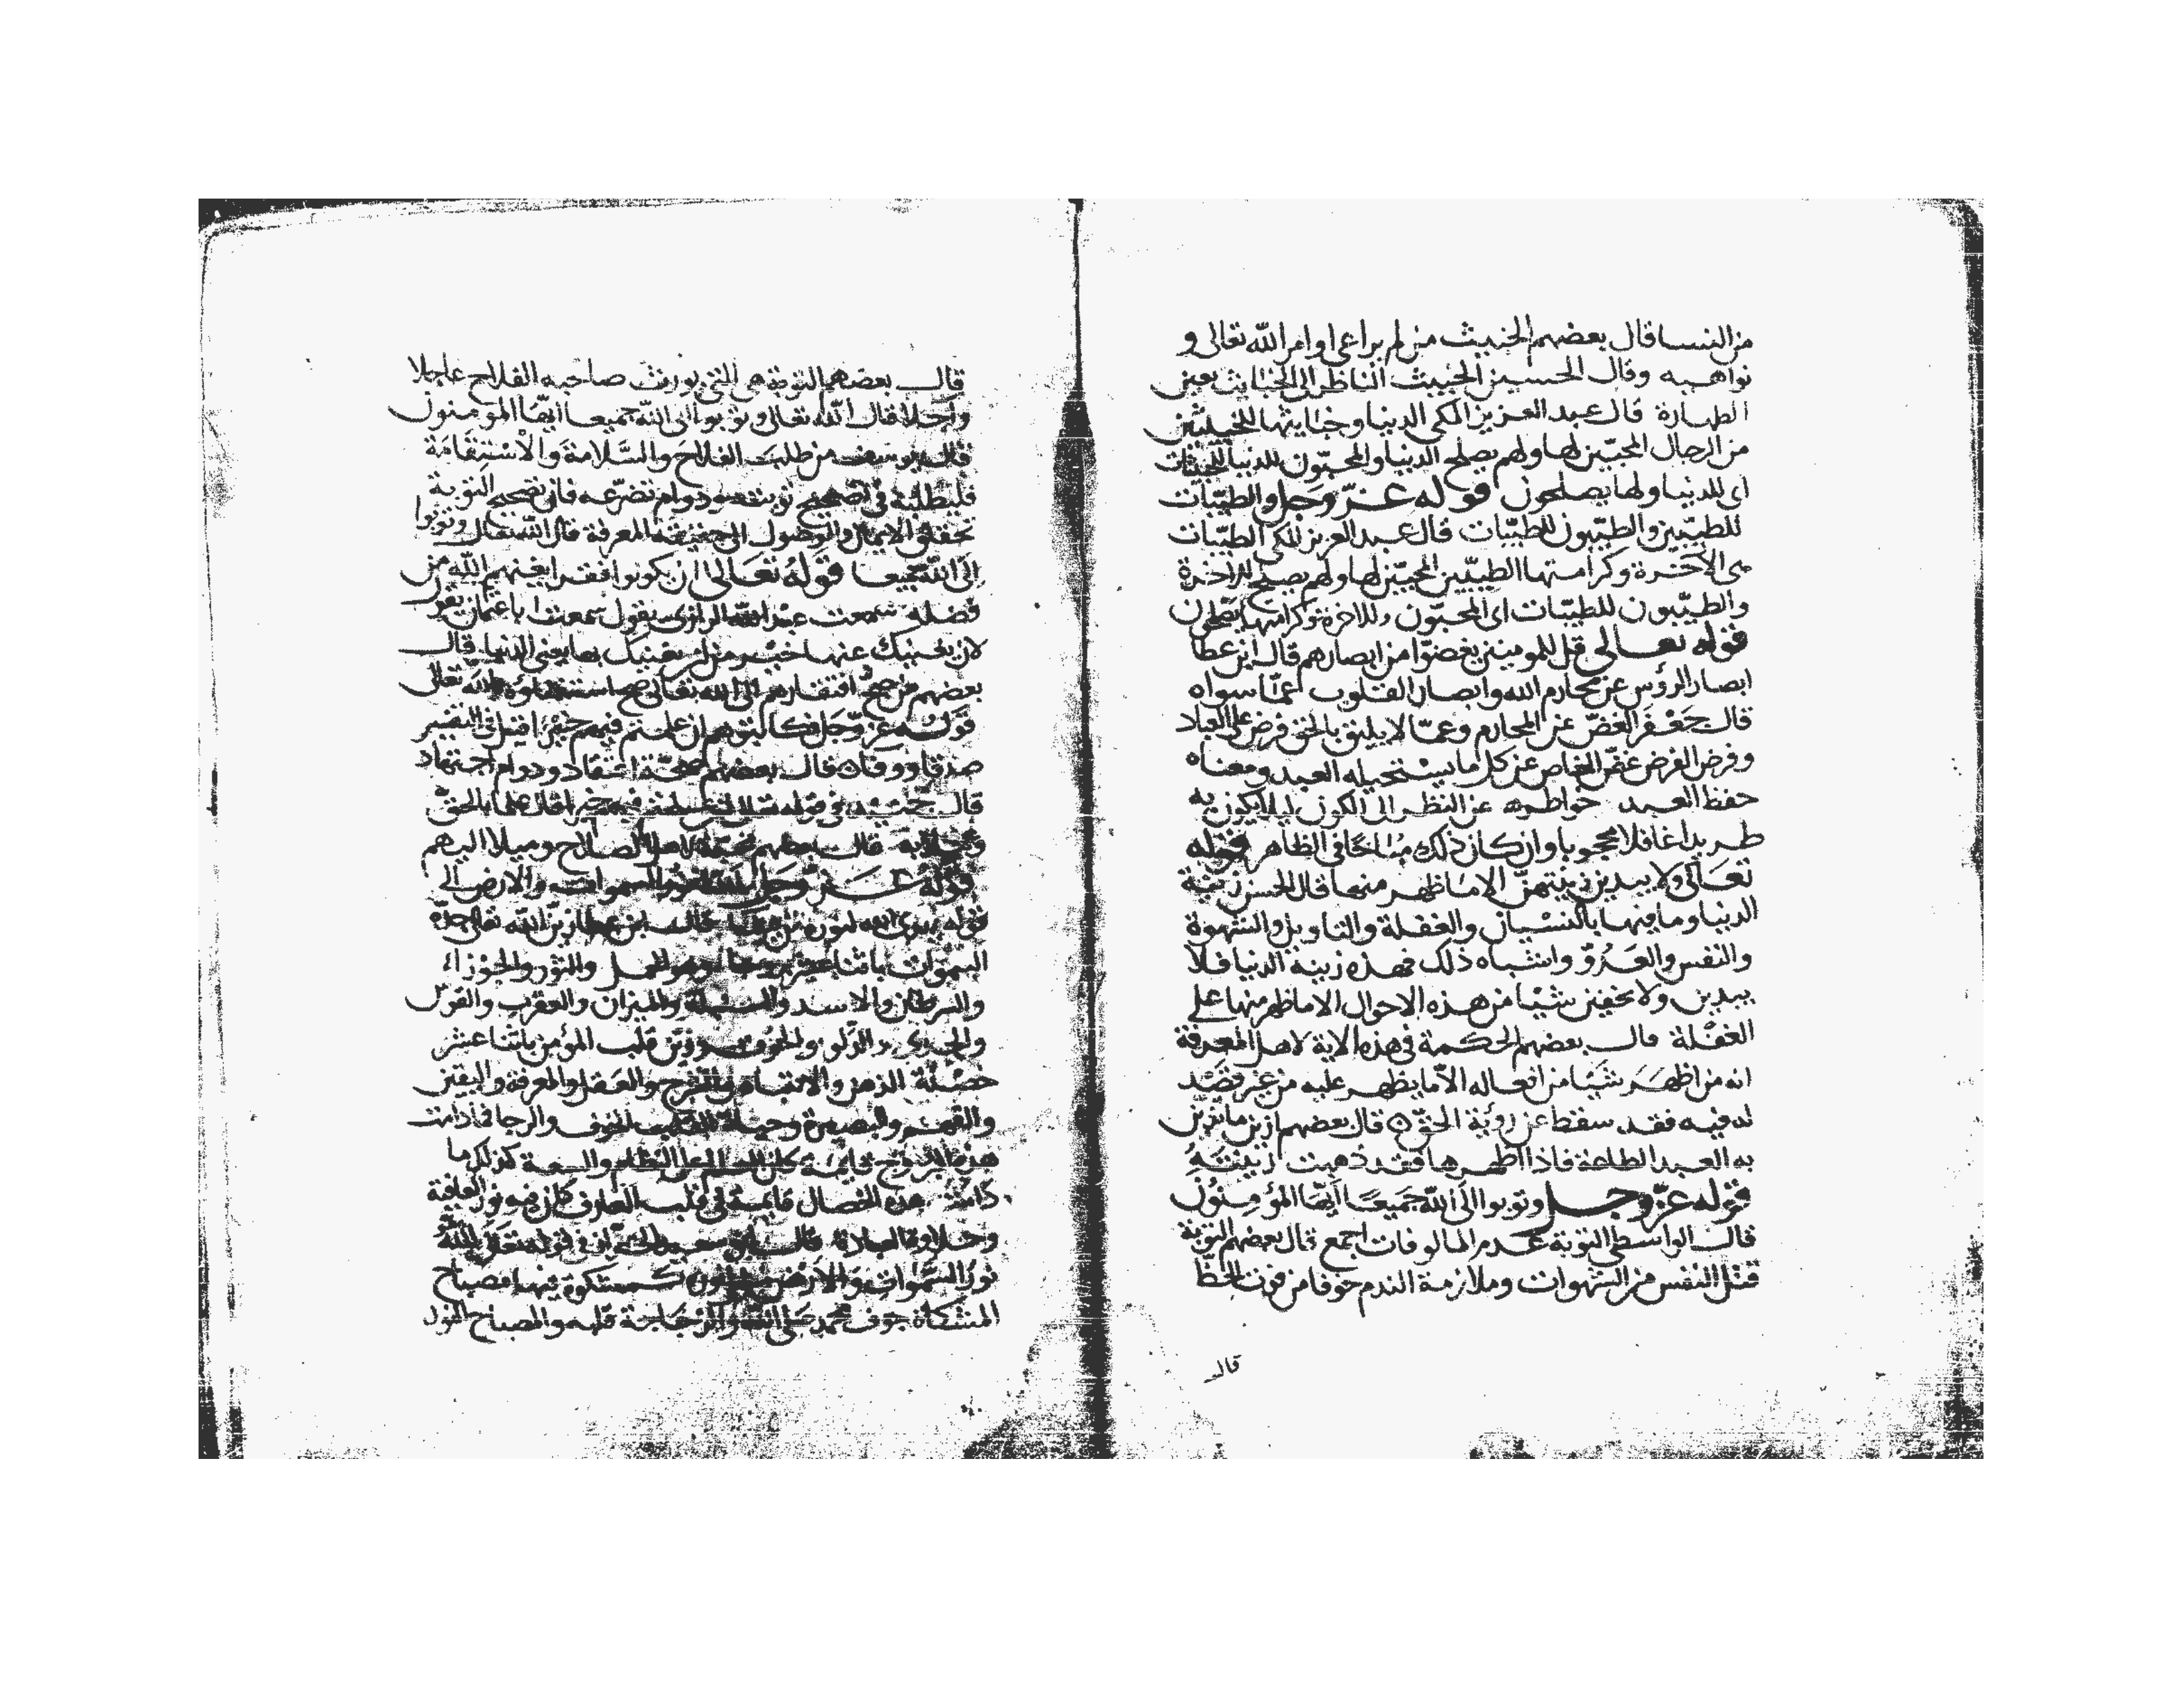 من النسا قال بعضهم الخبيث من لم يراعي اوامر الله تعالى و
نواهيه وقال الحسين الخبيث الناظر الى الخبايث بعين
الطهارة قال عبد العزيز المكي الدنيا وخبايثها للخبيثين
من الرجال المحبين لها ولهم يصلح الدنيا والمحبون للدنيا للخبيثات
اى للدنيا ولها يصلحون قوله عزّ وجل والطيّبات
للطيّبين والطيّبون للطيّبات قال عبد العزيز المكي الطيّبات
هى الآخرة وكرامتها الطيبين المحبّين لها ولهم يصلح الاخرة
والطيّبون للطيّبات اى المحبّون وللاخرة وكرامتها يصلحون
قوله تعالى قل للمومنين يغضوّا من ابصارهم قال ابن عطا
ابصار الرؤس عن محارم الله وابصار القلوب عمّا سواه
قال جعفر الغضّ عن المحارم وعمّا لا يليق بالحق فرض على العباد
وفرض الفرض غضّ الخاص عن كل ما يستحيله العبد ومعناه
حفظ العبد خواطره عن النظر الى الكون ليلا يكون به
طريدا غافلا محجوبا وان كان ذلك مباحًا فى الظاهر قوله
تعالى ولا يبدين زينتهنّ الا ما ظهر منها قال الحسن زينة
الدنيا وما فيها بالنسيان والغفلة والتاويل والشهوة
والنفس والعدوّ واشباه ذلك فهذه زينة الدنيا فلا
يبدين ولا يخفين شيًا من هذه الاحوال الا ما ظهر منها على
الغفلة قال بعضهم الحكمة فى هذه الاية لاهل المعرفة
انه من اظهر شيًا من افعاله الّا ما يظهر عليه من غير قصد
له فيه فقد سقط عن رؤية الحقّ قال بعضهم ازين ما تزين
به العبد الطاعة فاذا اظهرها فقد ذهبت زينته
قوله عزّ وجل وتوبوا الى الله جميعًا ايّها المؤمنون
قال الواسطى التوبة عدم المالوفات اجمع قال بعضهم التوبة
قتل النفس من الشهوات وملازمة الندم خوفا من فوت الحظّ
قال
قال بعضهم التوبة هى التى يورث صاحبه الفلاح عاجلا
وآجلا قال الله تعالى وتوبوا الى الله جميعا ايّها المومنون
قال يوسف من طلب الفلاح والسّلامة والاستقامة
فليطلبه فى تصحيح توبته ودوام تضرّعه فان تصحيح التوبة
تحقيق الايمان والوصول الى حقيقة المعرفة قال الله تعالى وتوبوا
الى الله جميعا قوله تعالى ان يكونوا فقرا يغنهم الله من
فضله سمعت عبد الله الرازى يقول سمعت ابا عثمان يقول
لان يغنيك عنها خير من ان يغنيك بها يعني الدنيا قال
بعضهم من صحّ افتقارهم الى الله تعالى صح استغناؤه بالله تعالى
قوله عزّ وجل فكاتبوهم ان علمتم فيهم خيرًا قيل فى التفسير
صدقا ووفاء قال بعضهم صحّة اعتقاد ودوام اجتهاد
قال جنيد فى قوله تعالى ان علمتم فيهم خيرا قال علما بالحقّ
وعملا به قال بعضهم محبّة لاهل الصلاح وميلا اليهم
قوله عزّ وجل الله نور السموات والارض الى
قوله يهدى الله لنوره من يشا قال ابن عطا زيّن الله تعالى جدّه
السموات باثنا عشر برجا وهو الحمل والثور والجوزاء
والسرطان والاسد والسنبلة والميزان والعقرب والقوس
والجدى والدّلو والحوت وزيّن قلب المؤمن باثنا عشر
خصلة الذهن والانتباه والشرح والعقل والمعرفة واليقين
والفهم والبصيرة وحياة القلب الخوف والرجا فما دامت
هذه البروج قايمة كان العالم على النظام والسعة كذلك ما
دامت هذه الخصال قايمة فى قلب العارف كان فيه نور العافية
وحلاوة العبادة قال ابو سعيد الخراز فى قوله تعالى الله
نور السّموات والارض مثل نوره كمشكوة فيها مصباح
المشكاة جوف محمد صلى الله والزّجاجة قلبه والمصباح النور